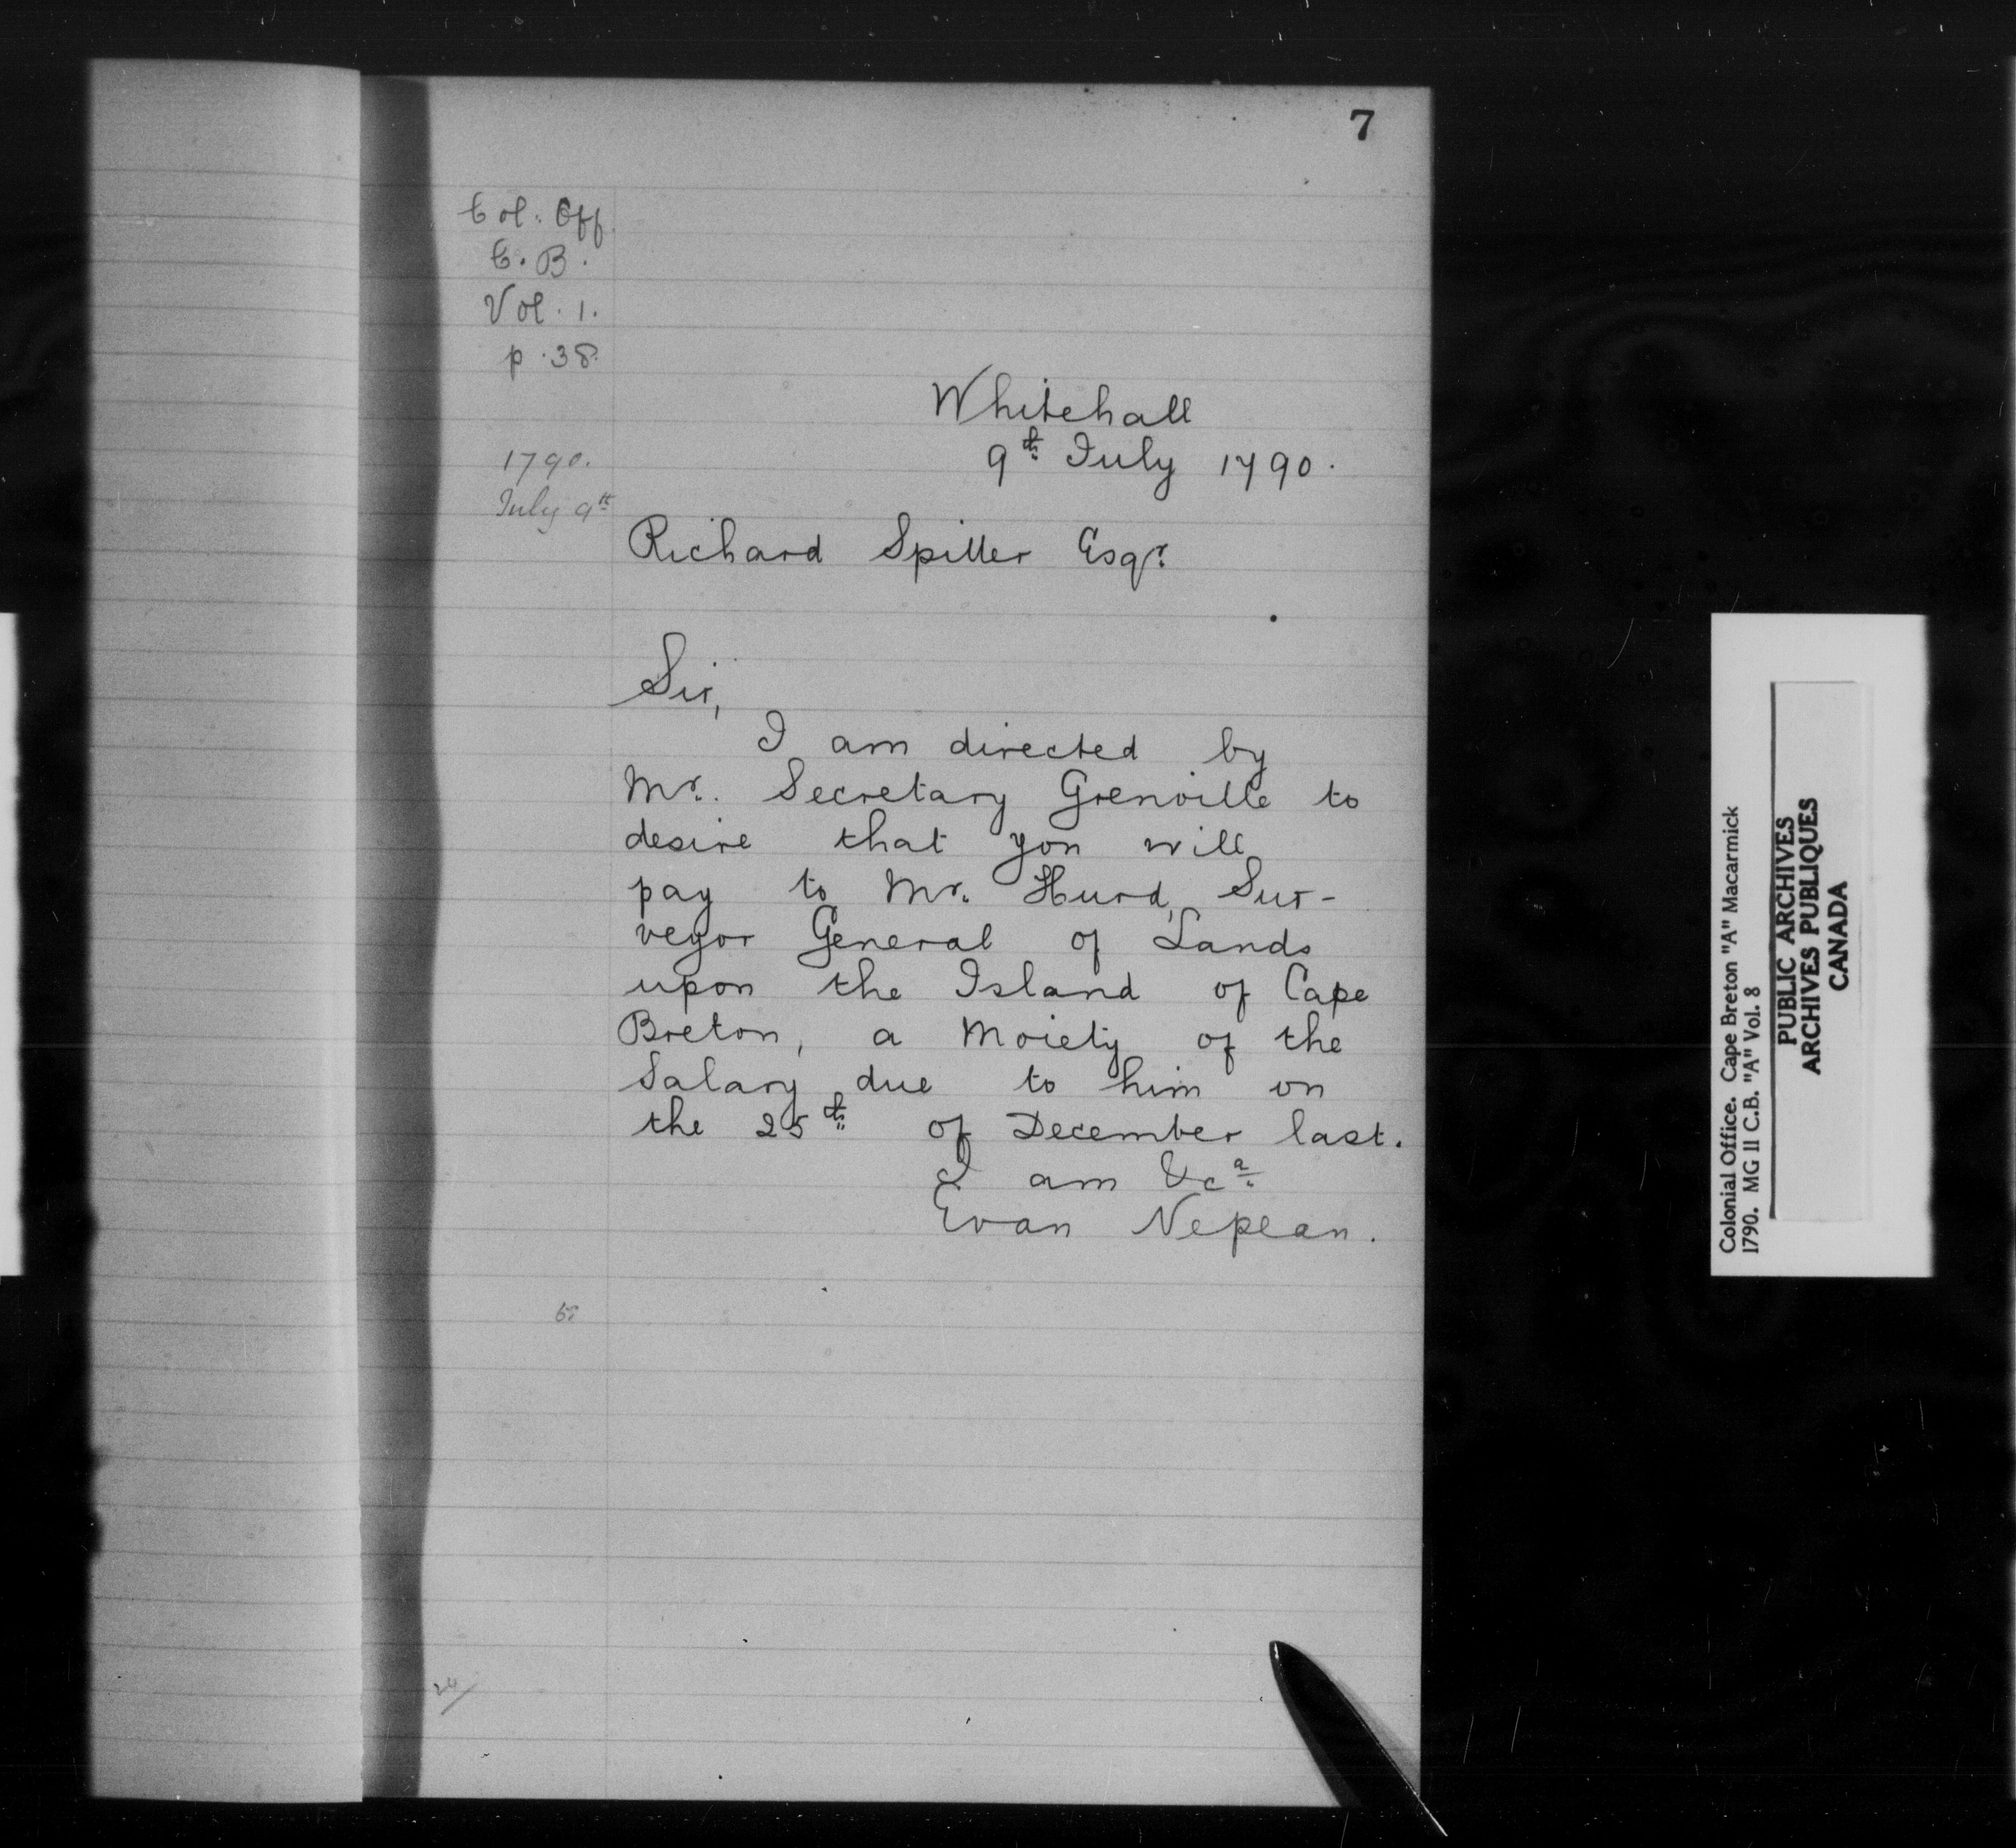 7
Col. Off.
C. B.
Vol. 1.
p. 38.
Whitehall
9th July 1790.
1790.
July 9th
Richard Spiller Esqr.
Sir,
I am directed by
Mr. Secretary Grenville to
desire that you will
pay to Mr. Hurd, Sur-
veyor General of Lands
upon the Island of Cape
Breton, a Moiety of the
Salary due to him on
the 25th of December last.
I am &ca.
Evan Nepean.
Colonial Office. Cape Breton "A" Macarmick
1790. MG 11 C.B. "A" Vol. 8
PUBLIC ARCHIVES
ARCHIVES PUBLIQUES
CANADA